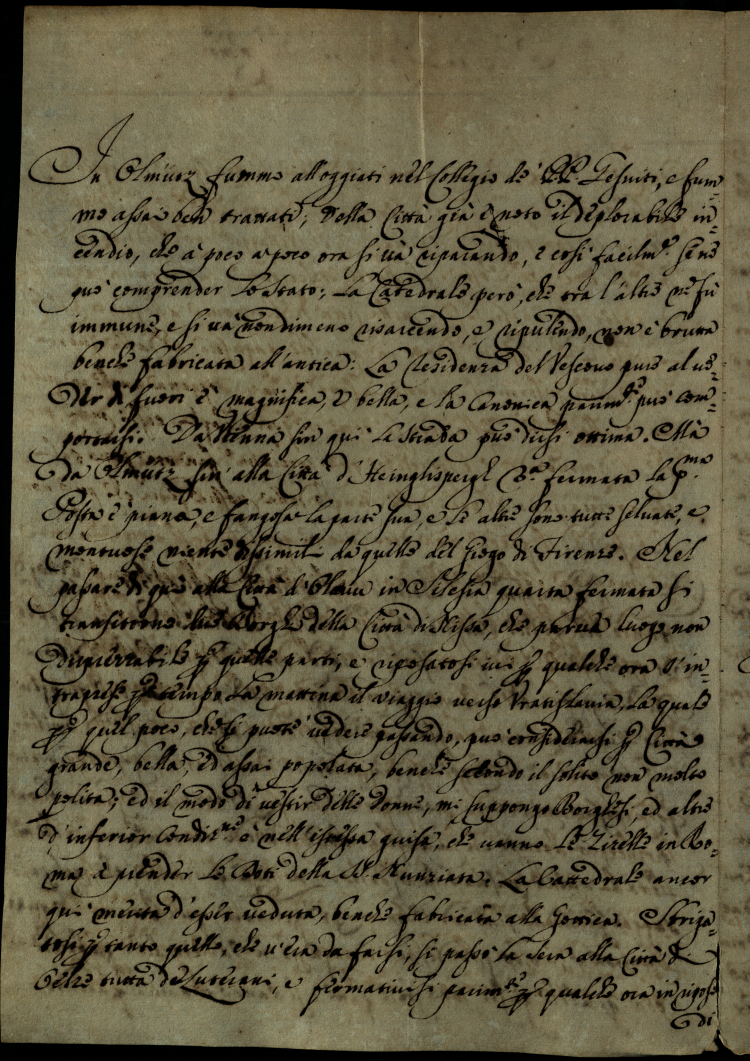 In Olmüz fummo alloggiati nel Collegio de' PP. Gesuiti, e fum=
mo assai ben trattati; della Città già è noto il deplorabile in=
cendio, che à poco a poco ora si và riparando, e così facilm.e se ne
può comprender lo stato; La Catedrale però, che tra l'altre ne fù
immune, e si và nondimeno risarcendo, e ripulendo, non è brutta
benche fabricata all'antica: La Residenza del Vescovo pure al ve=
der di fuori è magnifica, e bella, e la Canonica parim.te può com=
portarsi. Da Vienna sin qui la strada può dirsi ottima. Mà
da Olmüz sin' alla Città d' 3.a fermata la p.ma
Posta è piana, e fangosa la parte sua, e le altre sono tutte selvate, e
montuose niente dissimili da quelle del Giogo di Firenze. Nel
passare di qui alla Città d'Olau in Silesia quarta fermata si
transitorno li Borghi della Città di Nissa, che parve luogo non
disprezzabile p quelle parti, e riposatosi ivi p qualche ora s'in=
traprese p tempo la mattina il viaggio verso Vratislavia, la quale
p quel poco, che si puote vedere passando, può considerarsi p Città
grande, bella, ed assai popolata, benche secondo il solito non molto
polita; ed il modo di vestir delle donne, mi suppongo Borghesi, ed altre
d'inferior Condit.ne è nell'istessa guisa, che vanno le Zitelle in Ro=
ma à prender le Doti della SS. Nunziata. La Cattedrale ancor
qui merita d'esser veduta, benche fabricata alla Gottica. Sbriga=
tosi p tanto quello, che v'era da farsi, si passò la sera alla Città di
tutta de Luterani, e fermativisi parim.te p qualche ora in riposo
di